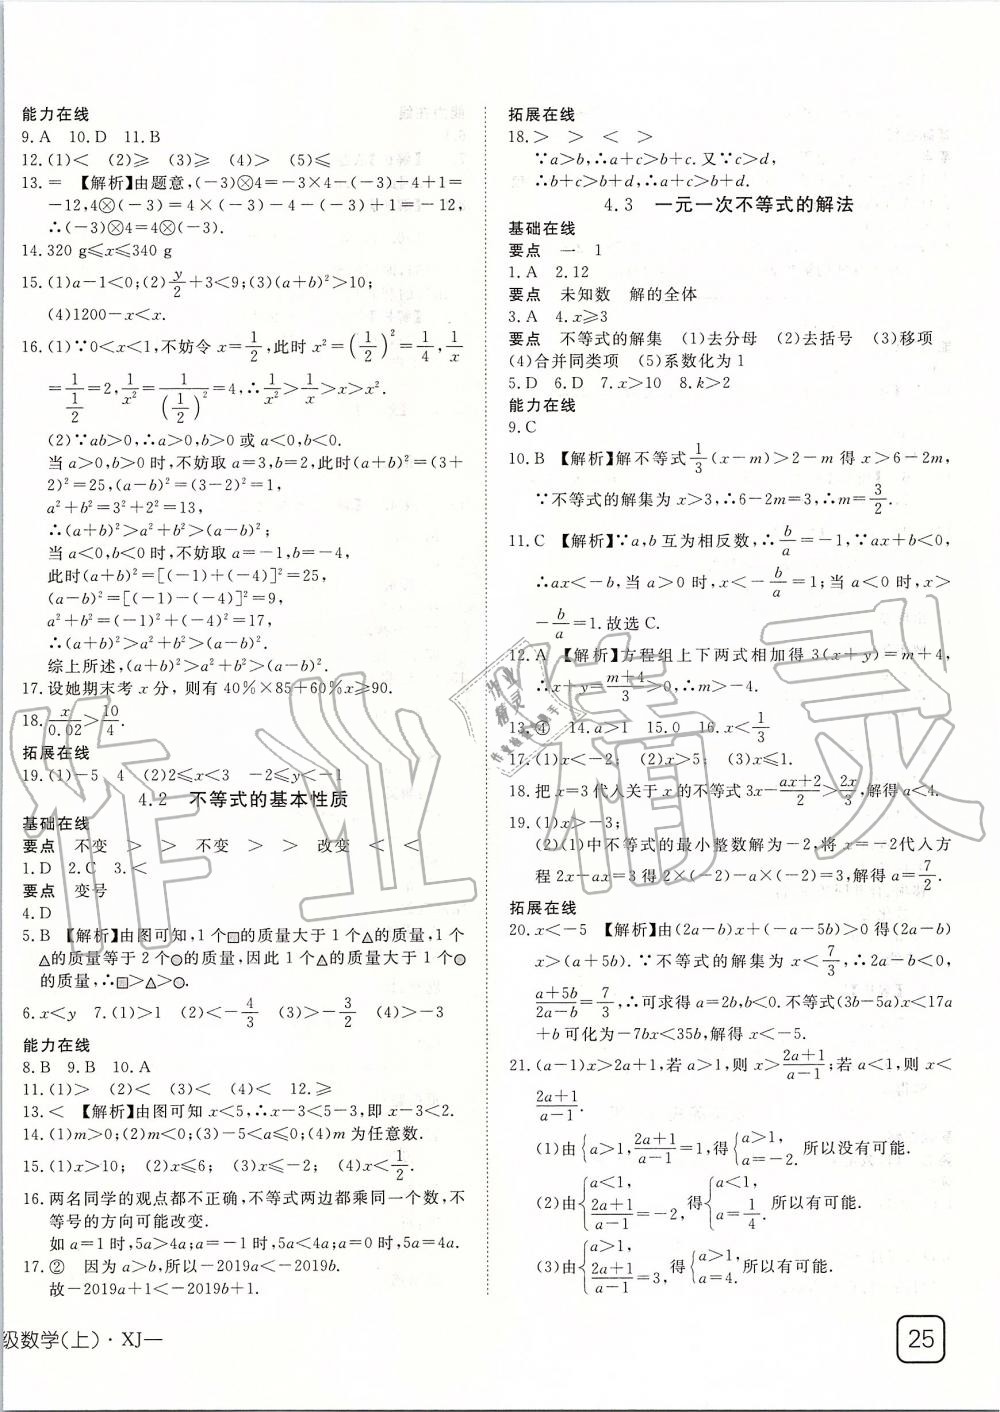 能力在线
9. A 10. D 11. B
12. (1)< (2)≥ (3)≥ (4)> (5)≤
13. = 【解析】由题意,(-3)⊗4=-3×4-(-3)-4+1=
-12,4⊗(-3)=4×(-3)-4-(-3)+1=-12,
∴(-3)⊗4=4⊗(-3).
14. 320 g≤x≤340 g
15. (1)a-1<0;(2)y/2+3<9;(3)(a+b)²>10;
(4)1200-x<x.
16. (1)∵0<x<1,不妨令 x=1/2,此时 x²=(1/2)²=1/4,1/x
=1/(1/2)=2,1/x²=1/(1/2)²=4,∴1/x²>1/x>x>x².
(2)∵ab>0,∴a>0,b>0 或 a<0,b<0.
当 a>0,b>0 时,不妨取 a=3,b=2,此时(a+b)²=(3+
2)²=25,(a-b)²=(3-2)²=1,
a²+b²=3²+2²=13,
∴(a+b)²>a²+b²>(a-b)²;
当 a<0,b<0 时,不妨取 a=-1,b=-4,
此时(a+b)²=[(-1)+(-4)]²=25,
(a-b)²=[(-1)-(-4)]²=9,
a²+b²=(-1)²+(-4)²=17,
∴(a+b)²>a²+b²>(a-b)².
综上所述,(a+b)²>a²+b²>(a-b)².
17. 设她期末考 x 分,则有 40%×85+60%x≥90.
18. x/0.02>10/4.
拓展在线
19. (1)-5 4 (2)2≤x<3 -2≤y<-1
4.2 不等式的基本性质
基础在线
要点 不变 > > 不变 > > 改变 < <
1. D 2. C 3. <
要点 变号
4. D
5. B 【解析】由图可知,1 个□的质量大于 1 个△的质量,1
个△的质量等于 2 个○的质量,因此 1 个△的质量大于 1 个○
的质量,∴□>△>○.
6. x<y 7. (1)>1 (2)<-4/3 (3)>-3/2 (4)>-3
能力在线
8. B 9. B 10. A
11. (1)> (2)< (3)< (4)< 12. ≥
13. < 【解析】由图可知 x<5,∴x-3<5-3,即 x-3<2.
14. (1)m>0;(2)m<0;(3)-5<a<0;(4)m 为任意数.
15. (1)x>10; (2)x≤6; (3)x≤-2; (4)x<1/2.
16. 两名同学的观点都不正确,不等式两边都乘同一个数,不
等号的方向可能改变.
如 a=1 时,5a>4a;a=-1 时,5a<4a;a=0 时,5a=4a.
17. ② 因为 a>b,所以-2019a<-2019b.
故-2019a+1<-2019b+1.
级数学(上)·XJ—
拓展在线
18. > > < >
∵a>b,∴a+c>b+c.又∵c>d,
∴b+c>b+d,∴a+c>b+d.
4.3 一元一次不等式的解法
基础在线
要点 一 1
1. A 2. 12
要点 未知数 解的全体
3. A 4. x≥3
要点 不等式的解集 (1)去分母 (2)去括号 (3)移项
(4)合并同类项 (5)系数化为 1
5. D 6. D 7. x>10 8. k>2
能力在线
9. C
10. B 【解析】解不等式1/3(x-m)>2-m 得 x>6-2m,
∵不等式的解集为 x>3,∴6-2m=3,∴m=3/2.
11. C 【解析】∵a,b 互为相反数,∴b/a=-1,∵ax+b<0,
∴ax<-b,当 a>0 时,x<-b/a=1;当 a<0 时,x>
-b/a=1.故选 C.
12. A 【解析】方程组上下两式相加得 3(x+y)=m+4,
∴x+y=(m+4)/3>0,∴m>-4.
13. ④ 14. a>1 15. 0 16. x<1/3
17. (1)x<-2; (2)x>5; (3)x≤1.
18. 把 x=3 代入关于 x 的不等式 3x-(ax+2)/2>2x/3,解得 a<4.
19. (1)x>-3;
(2)(1)中不等式的最小整数解为-2,将 x=-2代入方
程 2x-ax=3 得 2×(-2)-a×(-2)=3,解得 a=7/2.
拓展在线
20. x<-5 【解析】由(2a-b)x+(-a-5b)>0 得(2a-b)
x>(a+5b).∵不等式的解集为 x<7/3,∴2a-b<0,
(a+5b)/(2a-b)=7/3,∴可求得 a=2b,b<0.不等式(3b-5a)x<17a
+b 可化为-7bx<35b,解得 x<-5.
21. (a-1)x>2a+1,若 a>1,则 x>(2a+1)/(a-1);若 a<1,则 x<
(2a+1)/(a-1).
(1)由{a>1,(2a+1)/(a-1)=1,得{a>1,a=-2. 所以没有可能.
(2)由{a<1,(2a+1)/(a-1)=-2,得{a<1,a=1/4. 所以有可能.
(3)由{a>1,(2a+1)/(a-1)=3,得{a>1,a=4. 所以有可能.
25
作业精灵